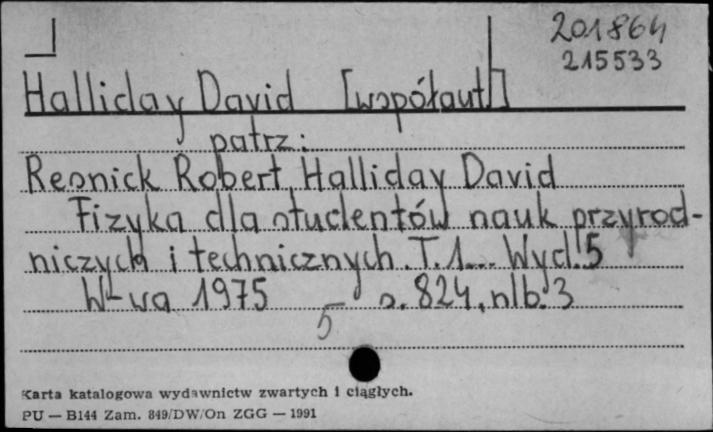 201864
215533
Halliday David [współaut.]
patrz:
Resnick Robert, Halliday David
Fizyka dla studentów nauk przyrod-
niczych i technicznych. T.1... Wyd. 5
W-wa 1975 s. 824, nlb. 3
5
Karta katalogowa wydawnictw zwartych i ciągłych.
PU — B144 Zam. 849/DW/On ZGG — 1991